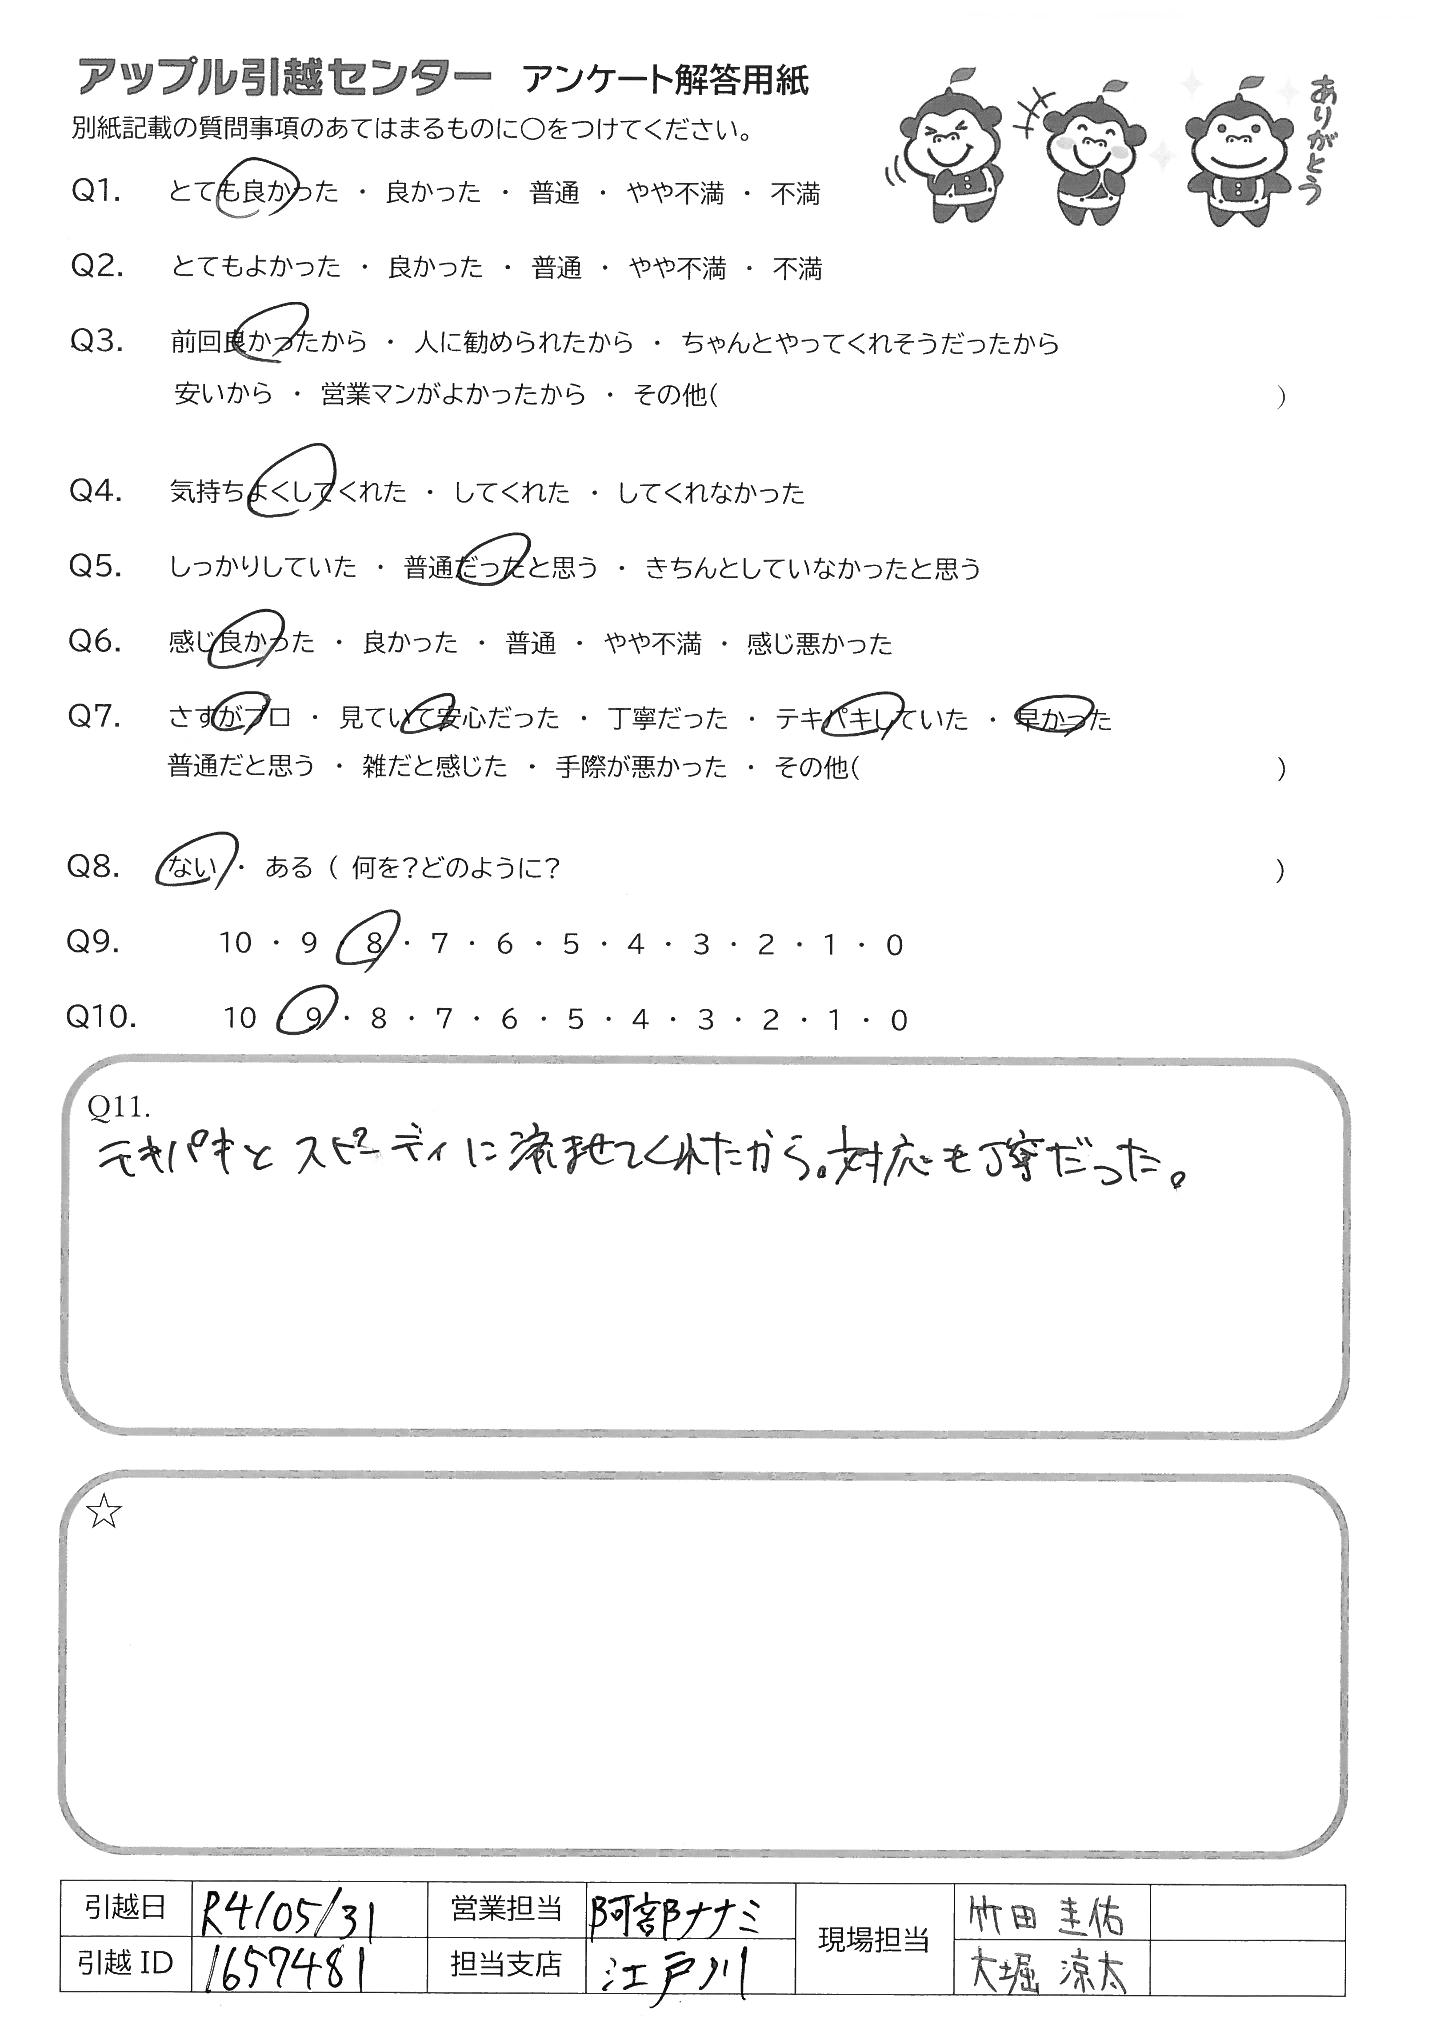 アップル引越センター アンケート解答用紙
ありがとう
別紙記載の質問事項のあてはまるものに〇をつけてください。
Q1. とても良かった ・ 良かった ・ 普通 ・ やや不満 ・ 不満
Q2. とてもよかった ・ 良かった ・ 普通 ・ やや不満 ・ 不満
Q3. 前回良かったから ・ 人に勧められたから ・ ちゃんとやってくれそうだったから
安いから ・ 営業マンがよかったから ・ その他( )
Q4. 気持ちよくしてくれた ・ してくれた ・ してくれなかった
Q5. しっかりしていた ・ 普通だったと思う ・ きちんとしていなかったと思う
Q6. 感じ良かった ・ 良かった ・ 普通 ・ やや不満 ・ 感じ悪かった
Q7. さすがプロ ・ 見ていて安心だった ・ 丁寧だった ・ テキパキしていた ・ 早かった
普通だと思う ・ 雑だと感じた ・ 手際が悪かった ・ その他( )
Q8. ない ・ ある ( 何を?どのように? )
Q9. 10 ・ 9 ・ 8 ・ 7 ・ 6 ・ 5 ・ 4 ・ 3 ・ 2 ・ 1 ・ 0
Q10. 10 ・ 9 ・ 8 ・ 7 ・ 6 ・ 5 ・ 4 ・ 3 ・ 2 ・ 1 ・ 0
Q11.
テキパキとスピーディに済ませてくれたから。対応も丁寧だった。
☆
引越日 R4/05/31 営業担当 阿部ナナミ 現場担当 竹田 圭佑
引越 ID 1657481 担当支店 江戸川 大堀 涼太